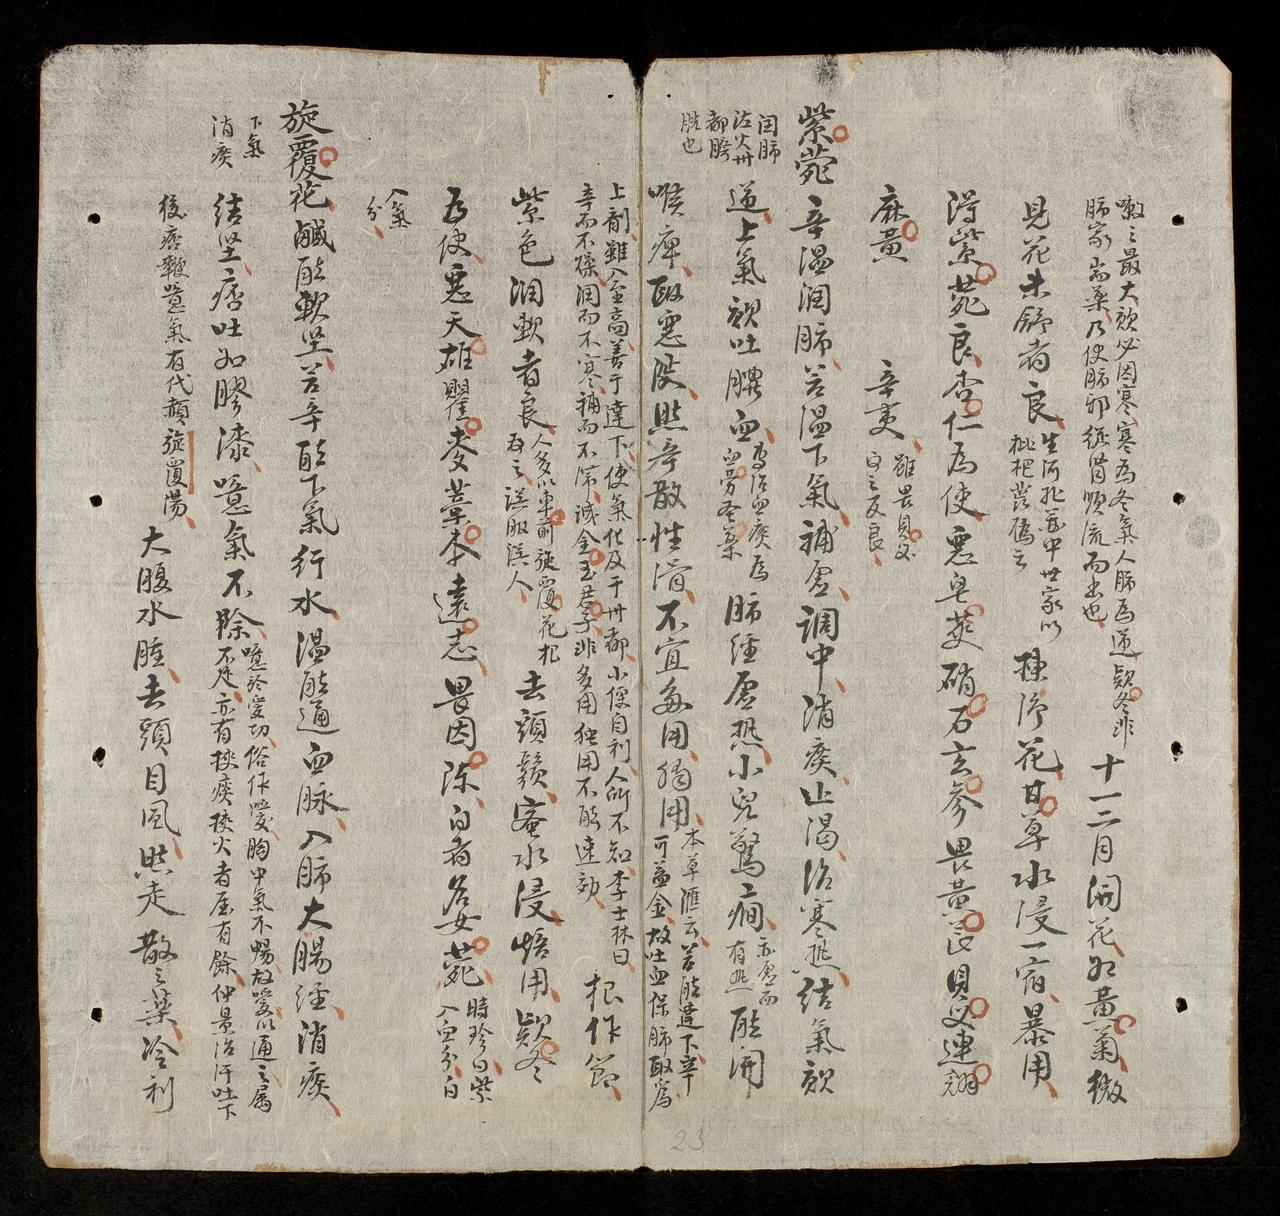 嗽之最大欬必因寒寒為冬氣人肺為逆款冬非
肺家耑藥乃使肺邪從腎順流而出也
十一二月開花如黃菊微
見花未舒者良
生河北關中世家以
枇杷蕊偽之
揀淨花甘草水浸一宿暴用
得紫菀良杏仁為使惡皂莢硝石玄參畏黃芪貝母連翹
麻黃 辛夷
雖畏貝母
得之反良
紫菀
潤肺
瀉火
都膀
胱也
辛溫潤肺苦溫下氣補虛調中消痰止渴治寒熱結氣欬
逆上氣欬吐膿血
專治血痰為
血勞聖藥
肺經虛熱小兒驚癇
亦虛而
有熱
能開
喉痺取惡涎然辛散性滑不宜多用獨用
本草滙云苦能達下辛
可益金故吐血保肺取為
上劑雖入至高善于達下使氣化及于州都小便自利人所不知李士材曰
辛而不燥潤而不寒補而不滯誠金玉君子非多用独用不能速効
根作節
紫色潤軟者良
人多以車前旋覆花根
為之誤服誤人
去頭鬚蜜水浸焙用款冬
為使惡天雄瞿麥藁本遠志畏因陳白者名女菀
時珍曰紫
入血分白
入氣
分
旋覆花
下氣
消痰
鹹能軟堅苦辛能下氣行水溫能通血脉入肺大腸經消痰
結堅痞吐如膠漆噫氣不除
噫於愛切俗作噯胸中氣不暢故噯以通之属
不足亦有挾痰挾火者屬有餘仲景治汗吐下
後痞鞕噫氣有代赭旋覆湯
大腹水腫去頭目風然走散之藥冷利
23